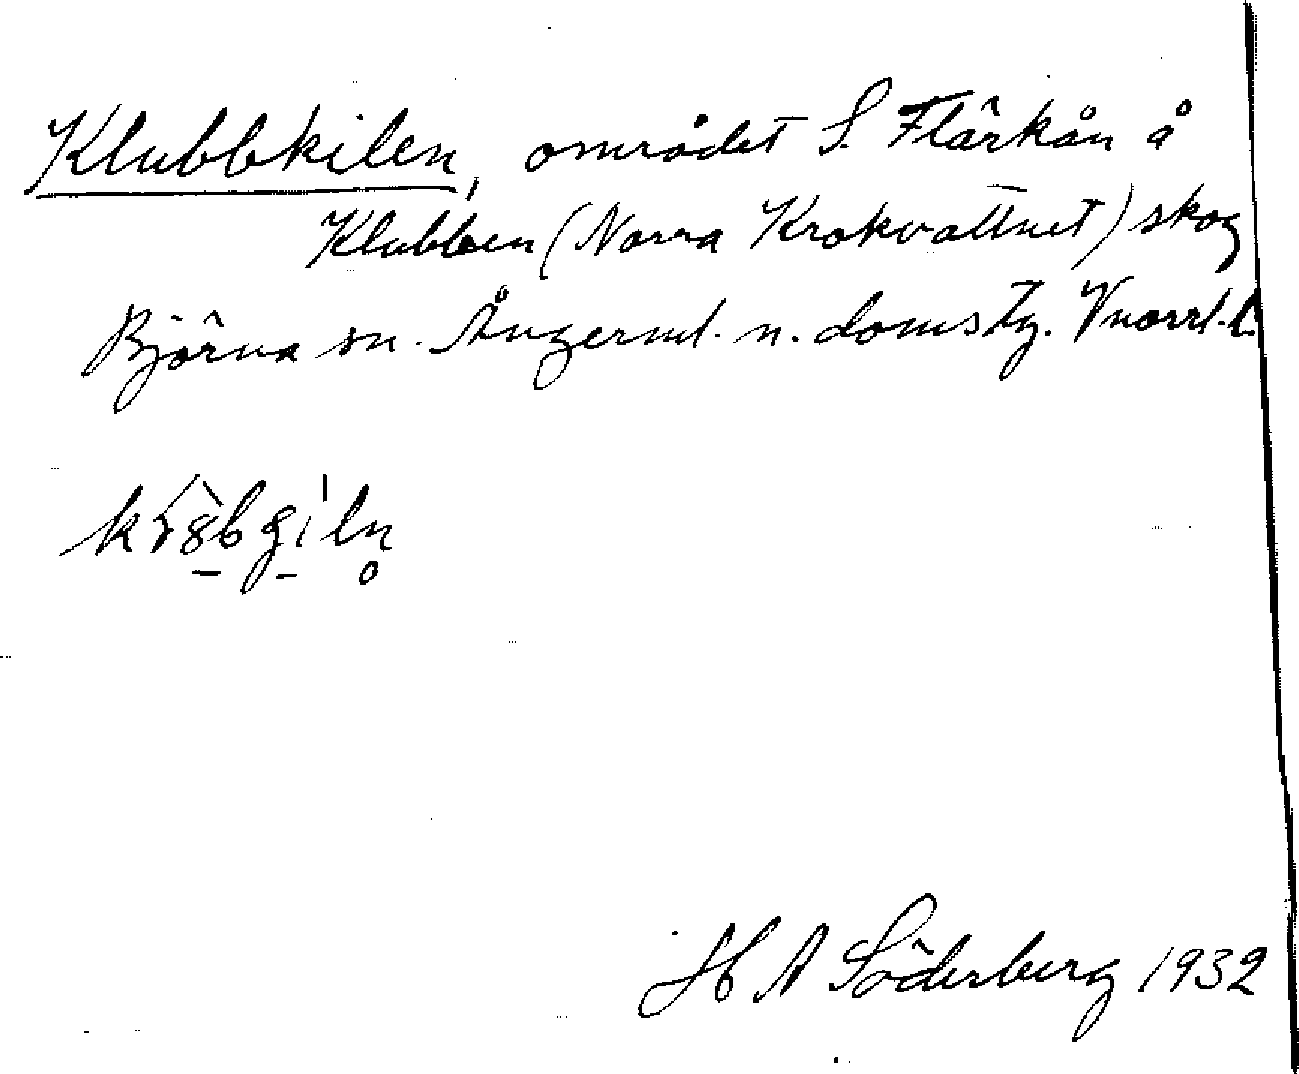 Klubbkilen, området S. Flärkån å
Klubben (Norra Krokvattnet) skog
Björna sn. Ångerml. n. domstg. Vnorrl. l.
H A Söderberg 1932